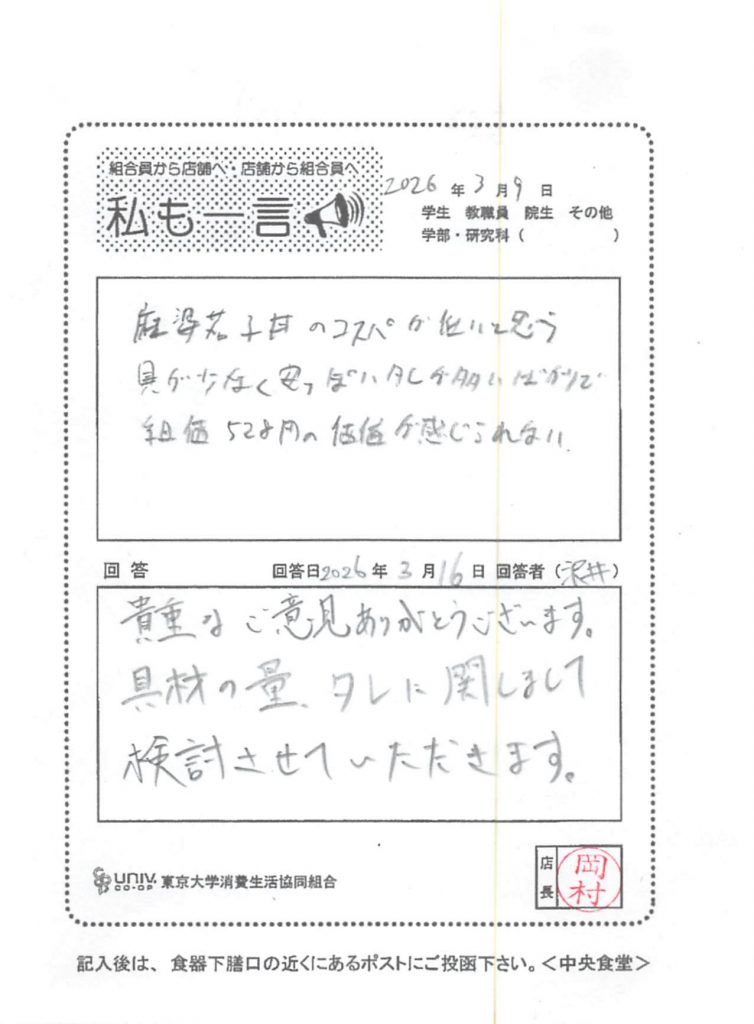 組合員から店舗へ・店舗から組合員へ
私も一言
2026 年 3 月 9 日
学生 教職員 院生 その他
学部・研究科 ( )
麻婆茄子丼のコスパが低いと思う
具が少なく安っぽいタレが多いばかりで
組価 528円の価値が感じられない
回答 回答日2026年 3月16日 回答者 (沢井)
貴重なご意見ありがとうございます。
具材の量、タレに関しまして
検討させていただきます。
UNIV. CO-OP 東京大学消費生活協同組合
店長 岡村
記入後は、食器下膳口の近くにあるポストにご投函下さい。<中央食堂>